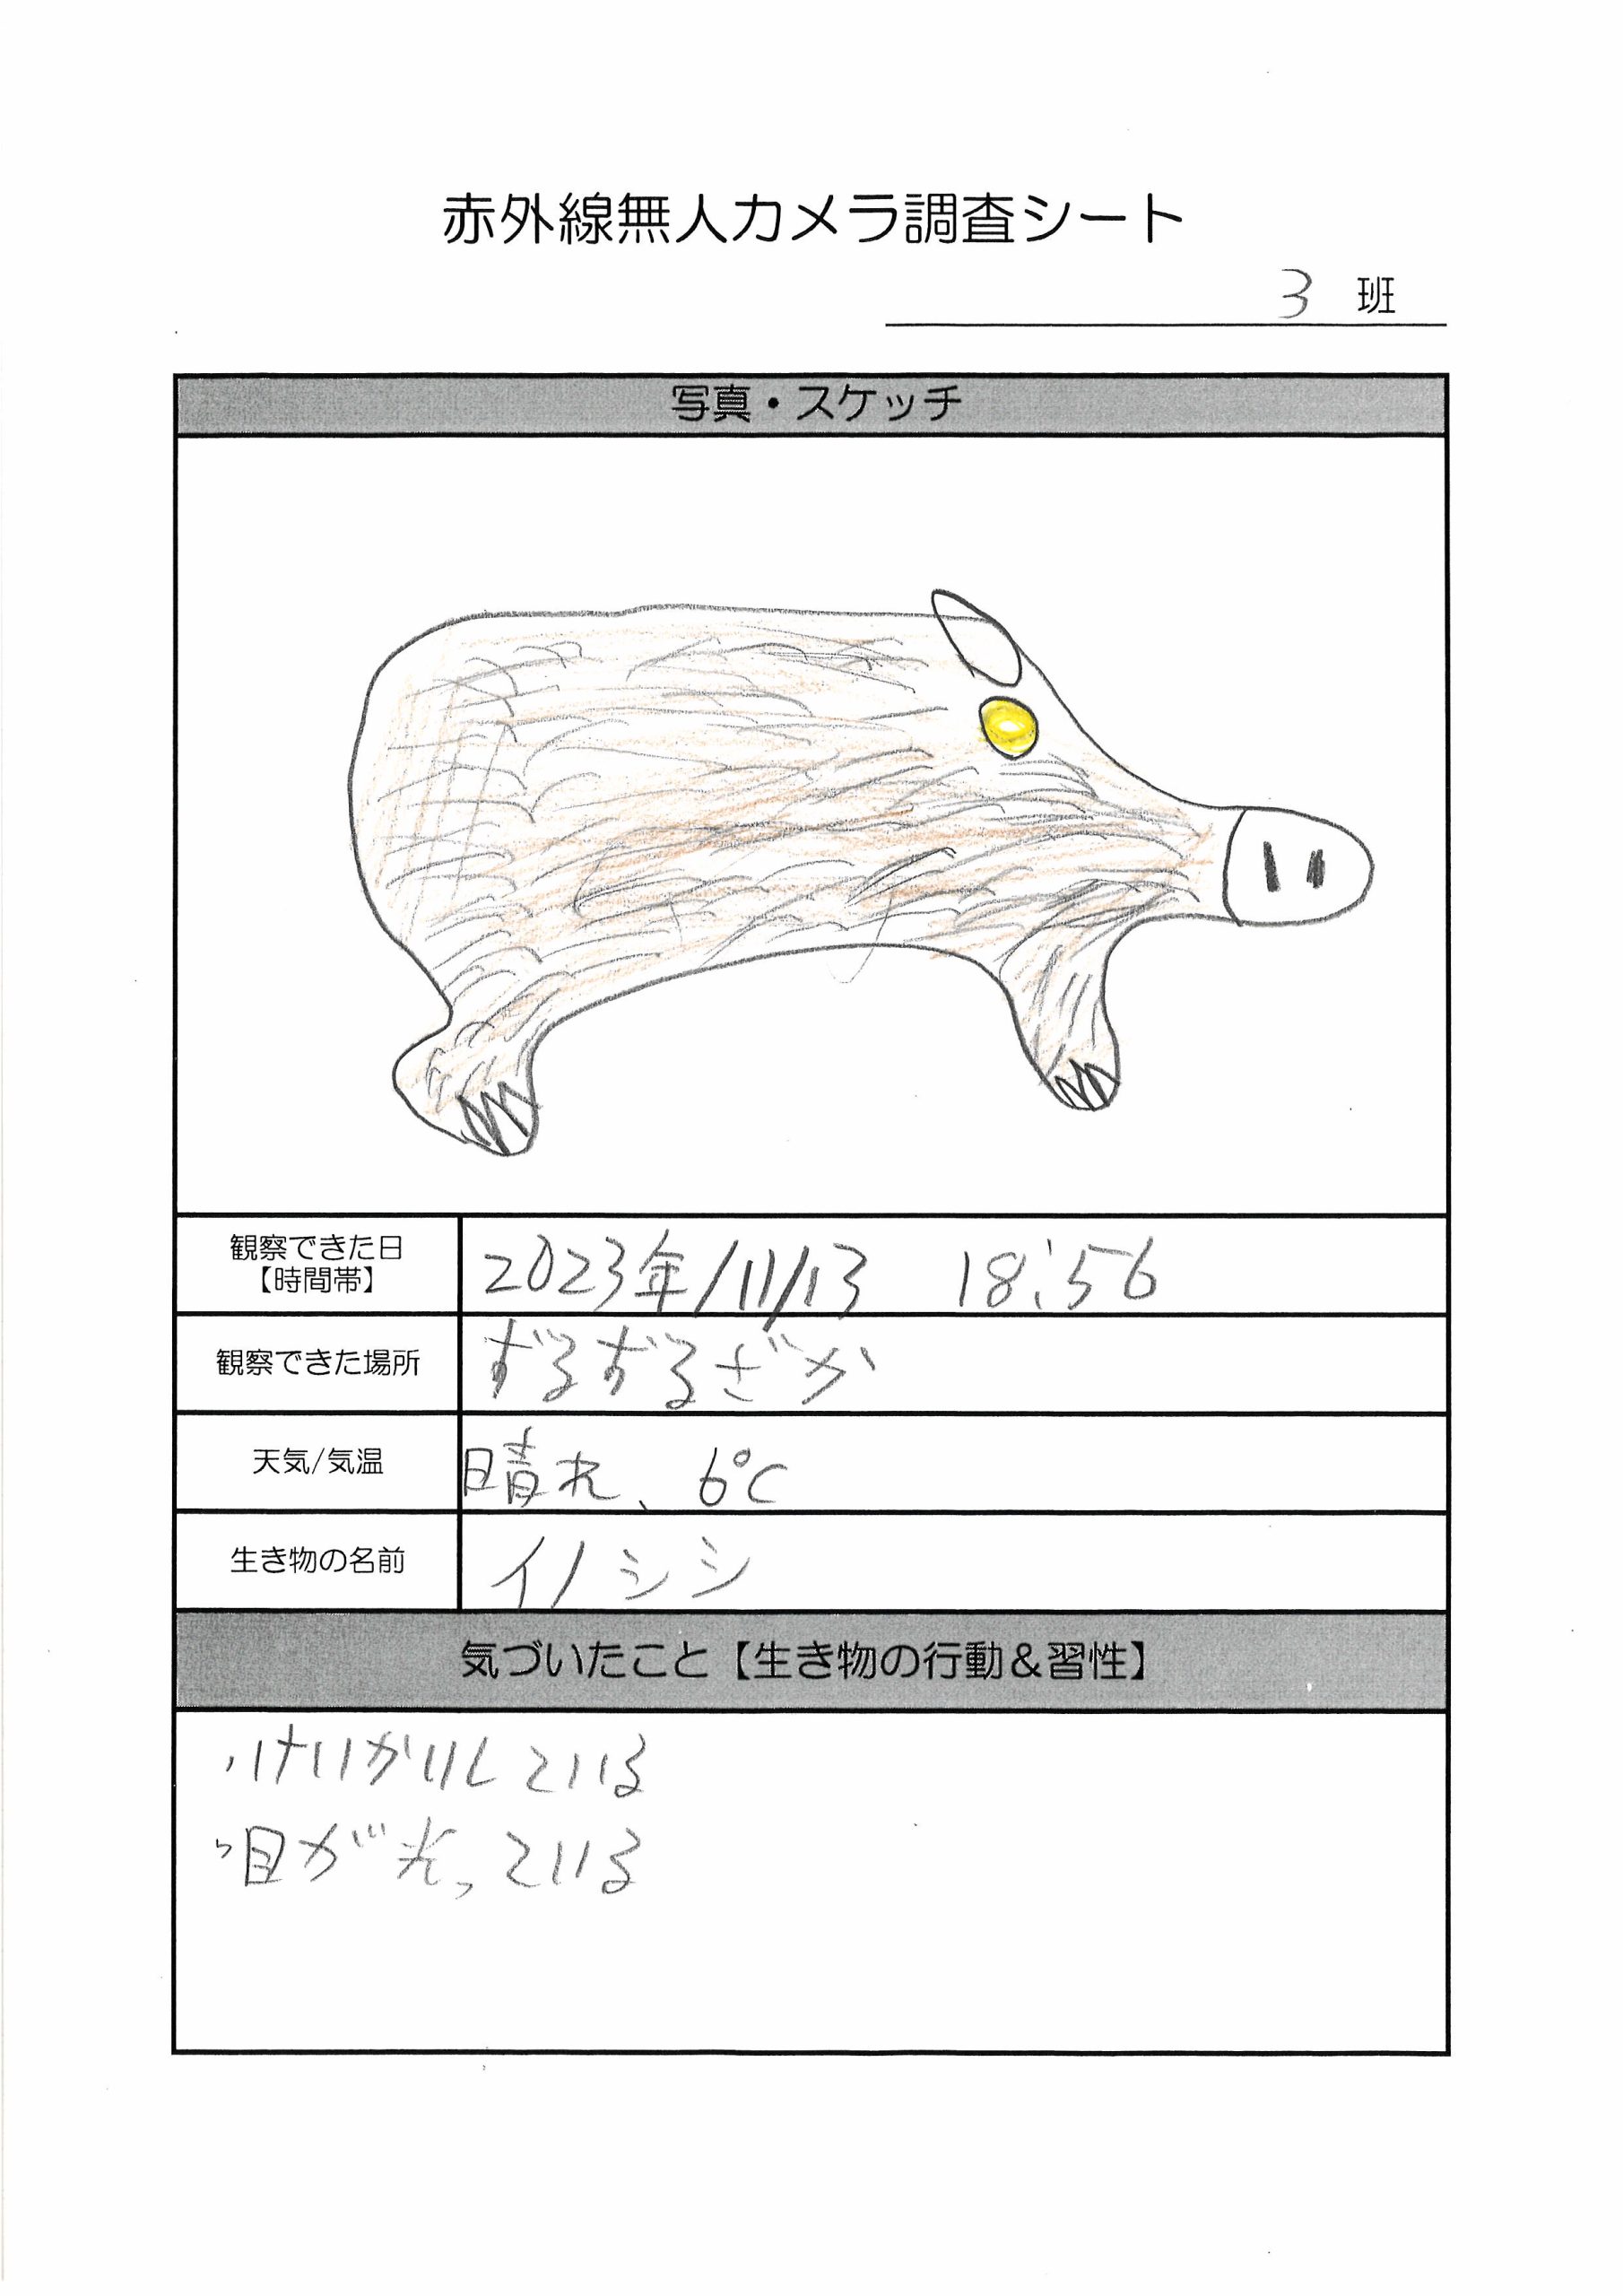 赤外線無人カメラ調査シート
3 班
写真・スケッチ
観察できた日
【時間帯】
2023年/11/13 18:56
観察できた場所
ずるずるざか
天気/気温
晴れ、6℃
生き物の名前
イノシシ
気づいたこと【生き物の行動&習性】
・けいかいしている
・目が光っている